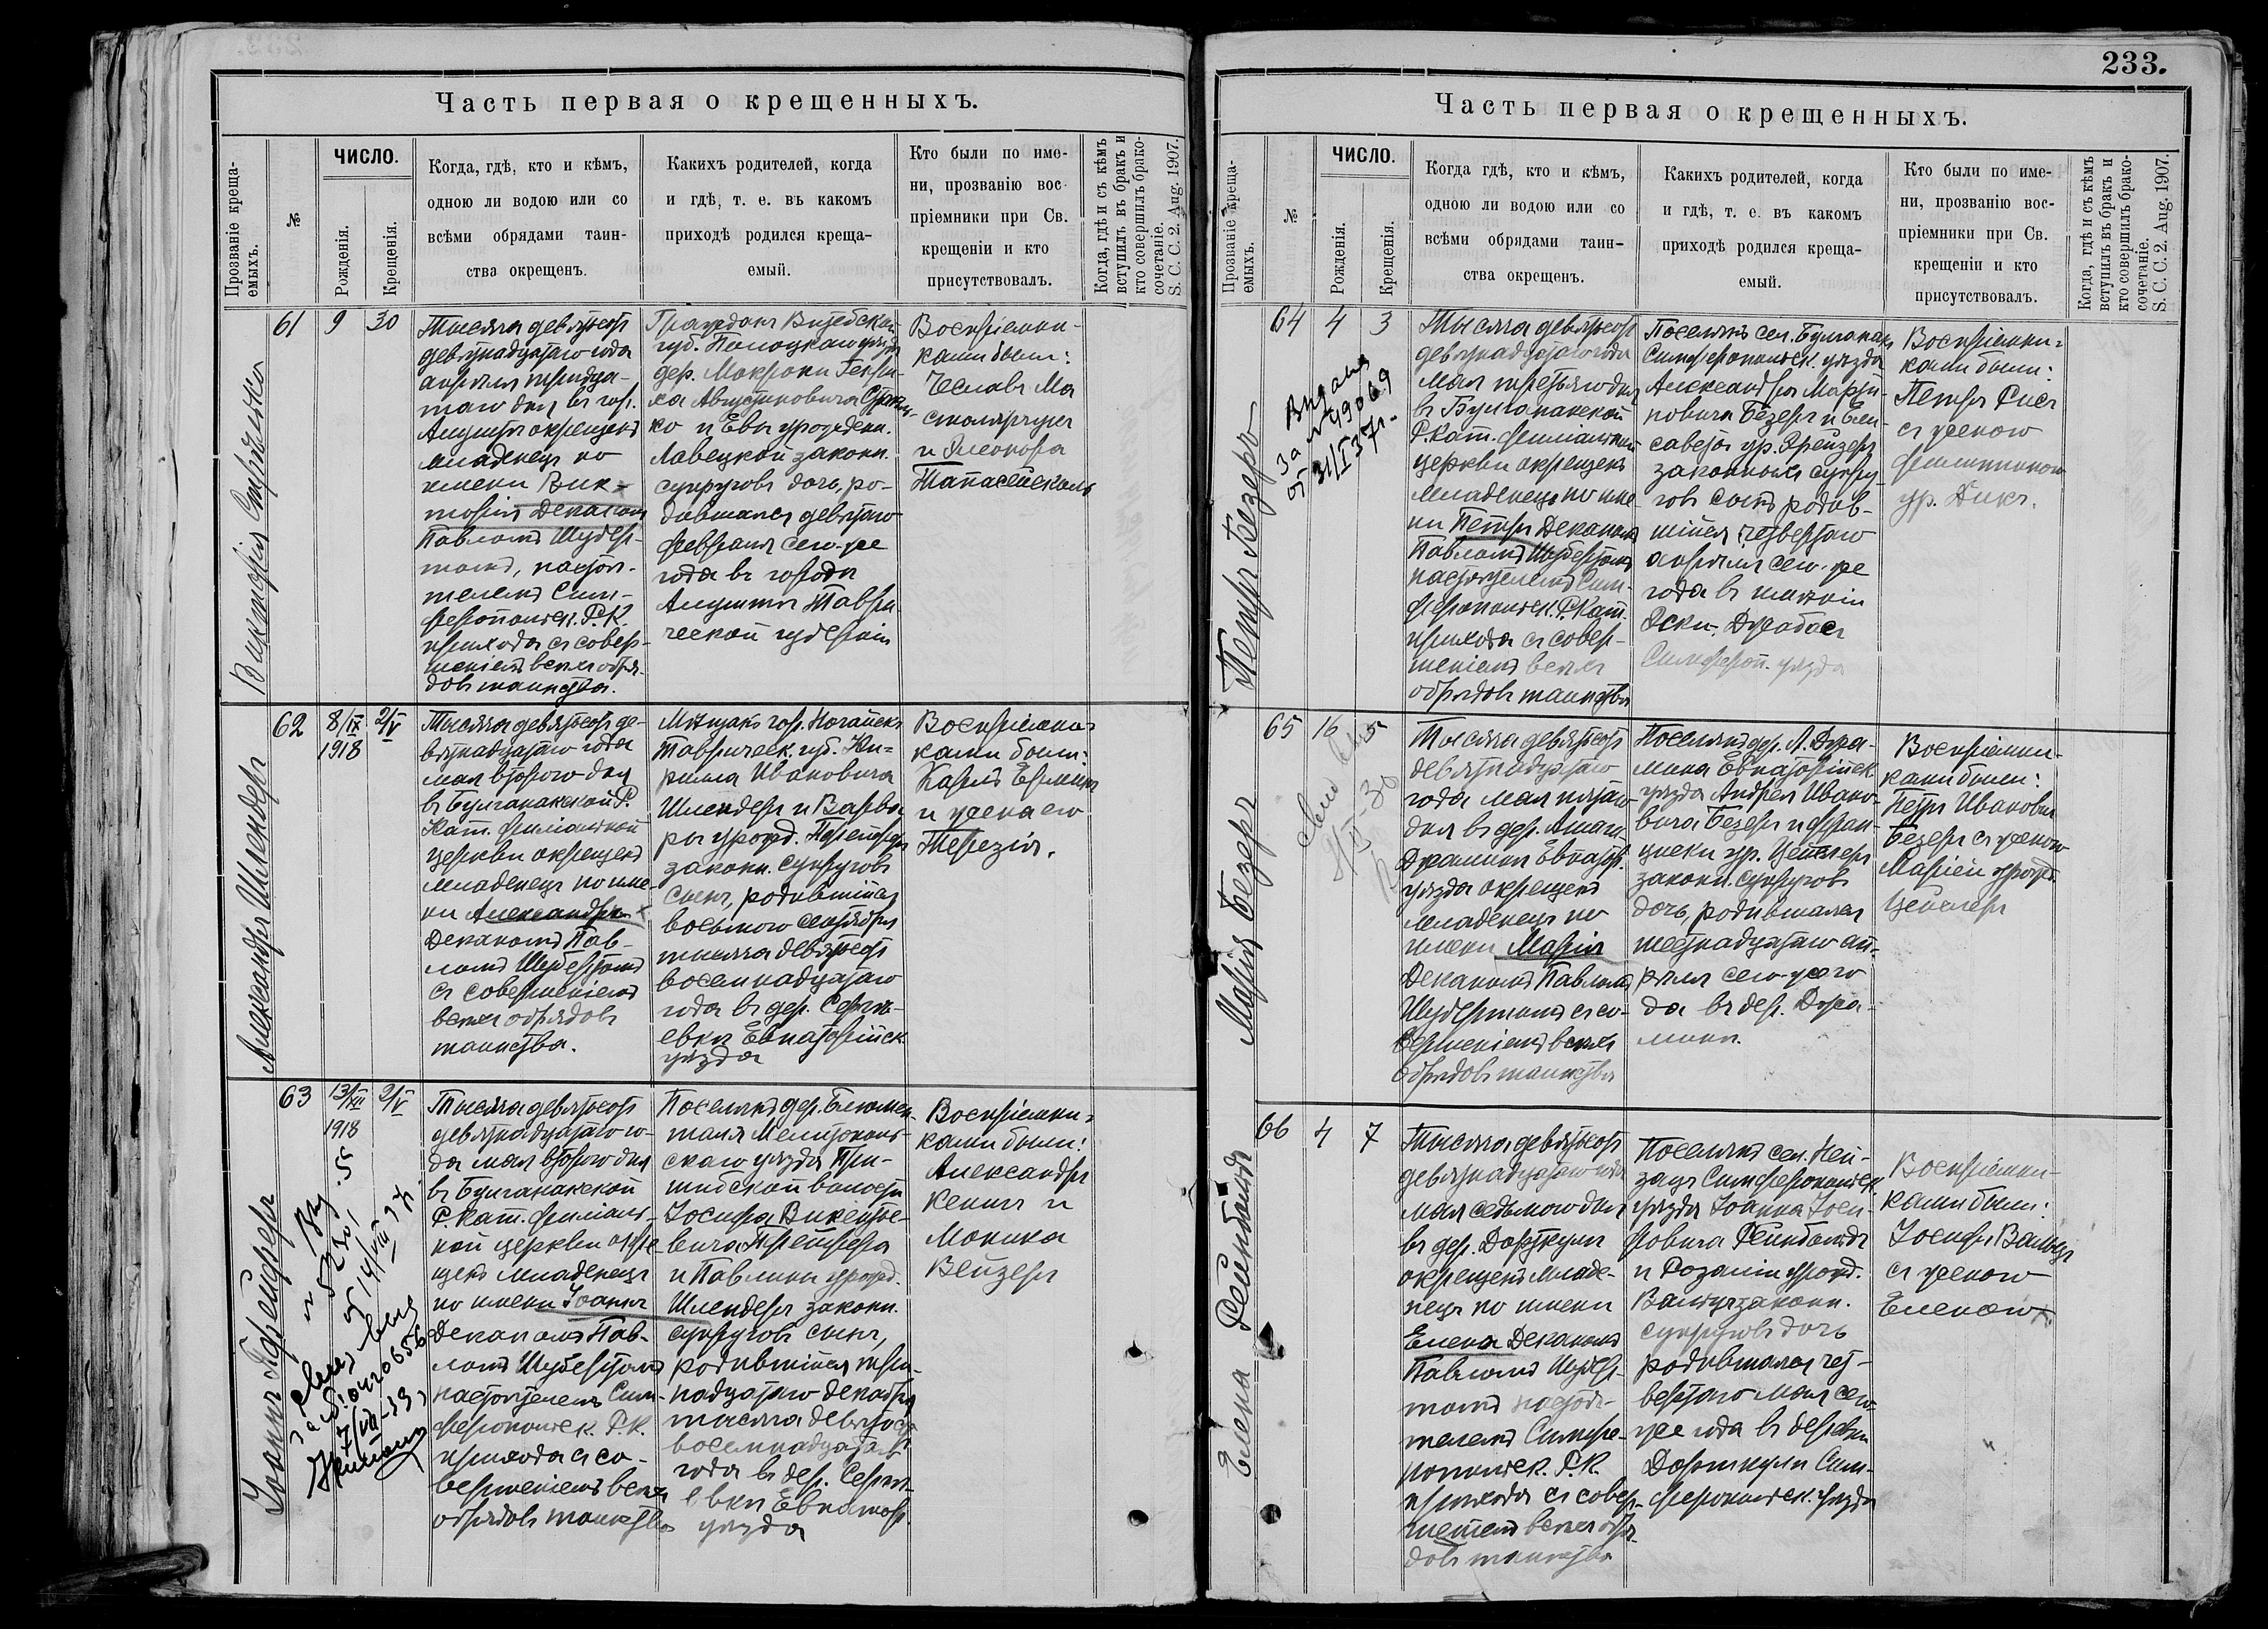 Часть первая о крещенныхъ.
Прозваніе креща-
емыхъ.
№
ЧИСЛО.
Рожденія.
Крещенія.
Когда, гдѣ, кто и кѣмъ,
одною ли водою или со
всѣми обрядами таин-
ства окрещенъ.
Какихъ родителей, когда
и гдѣ, т. е. въ какомъ
приходѣ родился креща-
емый.
Кто были по име-
ни, прозванію вос-
пріемники при Св.
крещеніи и кто
присутствовалъ.
Когда, гдѣ и съ кѣмъ
вступилъ въ бракъ и
кто совершилъ брако-
сочетаніе.
S. C. C. 2. Aug. 1907.
Викторія
61
9
30
Тысяча девятьсотъ
девятнадцатаго года
апрѣля тридца-
таго дня въ гор.
Алуштѣ окрещенъ
младенецъ по
имени Вик-
торія Деканомъ
Павломъ Шубер-
томъ, настоя-
телемъ Сим-
феропольск. Р.К.
прихода съ совер-
шеніемъ всѣхъ обря-
довъ таинства.
Гражданъ Витебской
губ. Полоцкаго уѣзда
дер. Макроки Генри-
ха Августиновича
ко и Евы урожденн.
Лавецкой законн.
супруговъ дочь, ро-
дившаяся девятаго
февраля сего-же
года въ городѣ
Алуштѣ Таври-
ческой губерніи
Воспріемни-
ками были:
Чеславъ Ма
столярчукъ
и Элеонора
Александръ Шлендеръ
62
8/IX
1918
2/V
Тысяча девятьсотъ де-
вятнадцатаго года
мая второго дня
въ Булганакской Р.
Кат. филіальной
церкви окрещенъ
младенецъ по име-
ни Александръ
Деканомъ Пав-
ломъ Шубертомъ
съ совершеніемъ
всѣхъ обрядовъ
таинства.
Мѣщанъ гор. Ногайска
Таврическ. губ. Ки-
рилла Ивановича
Шлендеръ и Варва-
ры урожд. Прейферъ
законн. супруговъ
сынъ, родившійся
восьмого сентября
тысяча девятьсотъ
восемнадцатаго
года въ дер. Сергѣ-
евкѣ Евпаторійск.
уѣзда
Воспріемни-
ками были:
Карлъ
и жена его
Терезія.
Іоаннъ Прейфера
63
13/XII
1918
2/V
от 14/VIII 37
за №: 0420656
7/VIII-39,
Тысяча девятьсотъ
девятнадцатаго го-
да мая второго дня
въ Булганакской
Р. Кат. филіаль-
ной церкви окре-
щенъ младенецъ
по имени Іоаннъ
Деканомъ Пав-
ломъ Шубертомъ
настоятелемъ Сим-
феропольск. Р.К.
прихода съ со-
вершеніемъ всѣхъ
обрядовъ таинства
Поселянъ дер. Блюмен-
таля Мелитополь-
скаго уѣзда При-
шибской волости
Іосифа Викентье-
вича Прейфера
и Павлины урожд.
Шлендеръ законн.
супруговъ сынъ,
родившійся три-
надцатаго декабря
тысяча девятьсотъ
восемнадцатаго
года въ дер. Сергѣ-
евкѣ Евпатор.
уѣзда
Воспріемни-
ками были:
Александръ
Кеннъ и
Моника
Вейзеръ
233.
Часть первая о крещенныхъ.
Прозваніе креща-
емыхъ.
№
ЧИСЛО.
Рожденія.
Крещенія.
Когда гдѣ, кто и кѣмъ,
одною ли водою или со
всѣми обрядами таин-
ства окрещен.
Какихъ родителей, когда
и гдѣ, т. е. въ какомъ
приходѣ родился креща-
емый.
Кто были по име-
ни, прозванію вос-
пріемники при Св.
крещеніи и кто
присутствовалъ.
Когда, гдѣ и съ кѣмъ
вступилъ въ бракъ и
кто совершилъ брако-
сочетаніе.
S. C. C. 2. Aug. 1907.
Петръ Безеръ
64
4
3
Выдана
за №49069
от 31/I 37 г.
Тысяча девятьсотъ
девятнадцатаго года
мая третьяго дня
въ Булганакской
Р. Кат. филіальной
церкви окрещенъ
младенецъ по име-
ни Петръ Деканомъ
Павломъ Шубертомъ
настоятелемъ Сим-
феропольск. Р.Кат.
прихода съ совер-
шеніемъ всѣхъ
обрядовъ таинства
Поселянъ сел. Булганакъ
Симферопольск. уѣзда
Александра Марти-
новича Безеръ и Ели-
саветы ур. Рейзеръ
законныхъ супру-
говъ сынъ родив-
шійся четвертаго
апрѣля сего-же
года въ имѣніи
Эски-Джабасъ
Симфероп. уѣзда
Воспріемни-
ками были:
Петръ Рисъ
съ женою
Филиппиною
ур. Дикъ.
Марія Безеръ
65
16
5
Тысяча девятьсотъ
девятнадцатаго
года мая пятаго
дня въ дер. Ашага
Джаминъ Евпатор.
уѣзда окрещенъ
младенецъ по
имени Марія
Деканомъ Павломъ
Шубертомъ съ со-
вершеніемъ всѣхъ
обрядовъ таинства
Поселянъ дер. А. Джа-
мина Евпаторійск.
уѣзда Андрея Ивано-
вича Безеръ и Фран-
циски ур. Цейлеръ
законн. супруговъ
дочь, родившаяся
шестнадцатаго ап-
рѣля сего-же го-
да въ дер. Джа-
минъ.
Воспріемни-
ками были:
Петръ Ивановичъ
Безеръ съ женою
Маріей урожд.
Цейлеръ
Елена Рейнбольдъ
66
4
7
Тысяча девятьсотъ
девятнадцатаго года
мая седьмого дня
въ дер. Дорткулъ
окрещенъ младе-
нецъ по имени
Елена Деканомъ
Павломъ Шубер-
томъ настоя-
телемъ Симфе-
ропольск. Р.К.
прихода съ совер-
шеніемъ всѣхъ обря-
довъ таинства
Поселянъ сел. Ней-
зацъ Симферопольск.
уѣзда Іоанна Іоси-
фовича Рейнбольдъ
и Розаліи урожд.
Вальцъ законн.
супруговъ дочь
родившаяся чет-
вертаго мая сего-
же года въ деревнѣ
Дорткулъ Сим-
феропольск. уѣзда
Воспріемни-
ками были:
Іосифъ Вальцъ
съ женою
Еленою